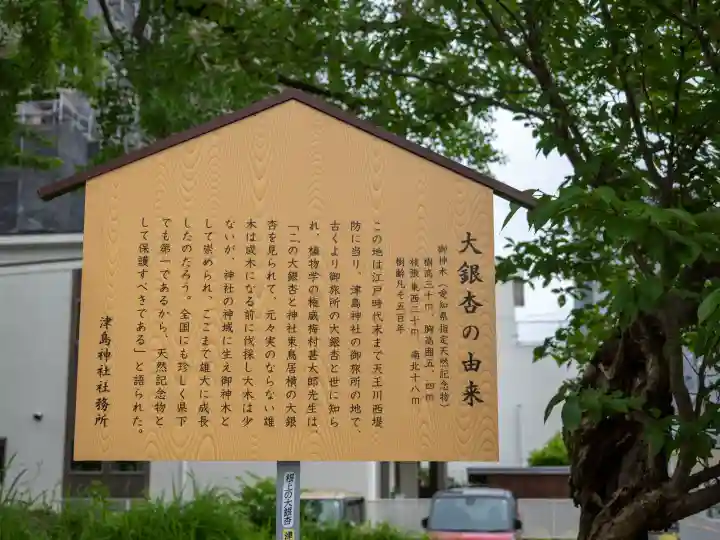 大銀杏の由来
御神木(愛知県指定天然記念物)
樹高三十m、胸高囲五、四m
枝張東西二十m、南北十八m
樹齢凡そ五百年
この地は江戸時代末まで天王川西堤
防に当り、津島神社の御旅所の地で、
古くより御旅所の大銀杏と世に知ら
れ、植物学の権威梅村甚太郎先生は、
「この大銀杏と神社東鳥居横の大銀
杏を見られて、元々実のならない雄
木は成木になる前に伐採し大木は少
ないが、神社の神域に生え御神木と
して崇められ、ここまで雄大に成長
したのだろう。全国にも珍しく県下
でも第一であるから、天然記念物と
して保護すべきである」と語られた。
津島神社社務所
根上の大銀杏